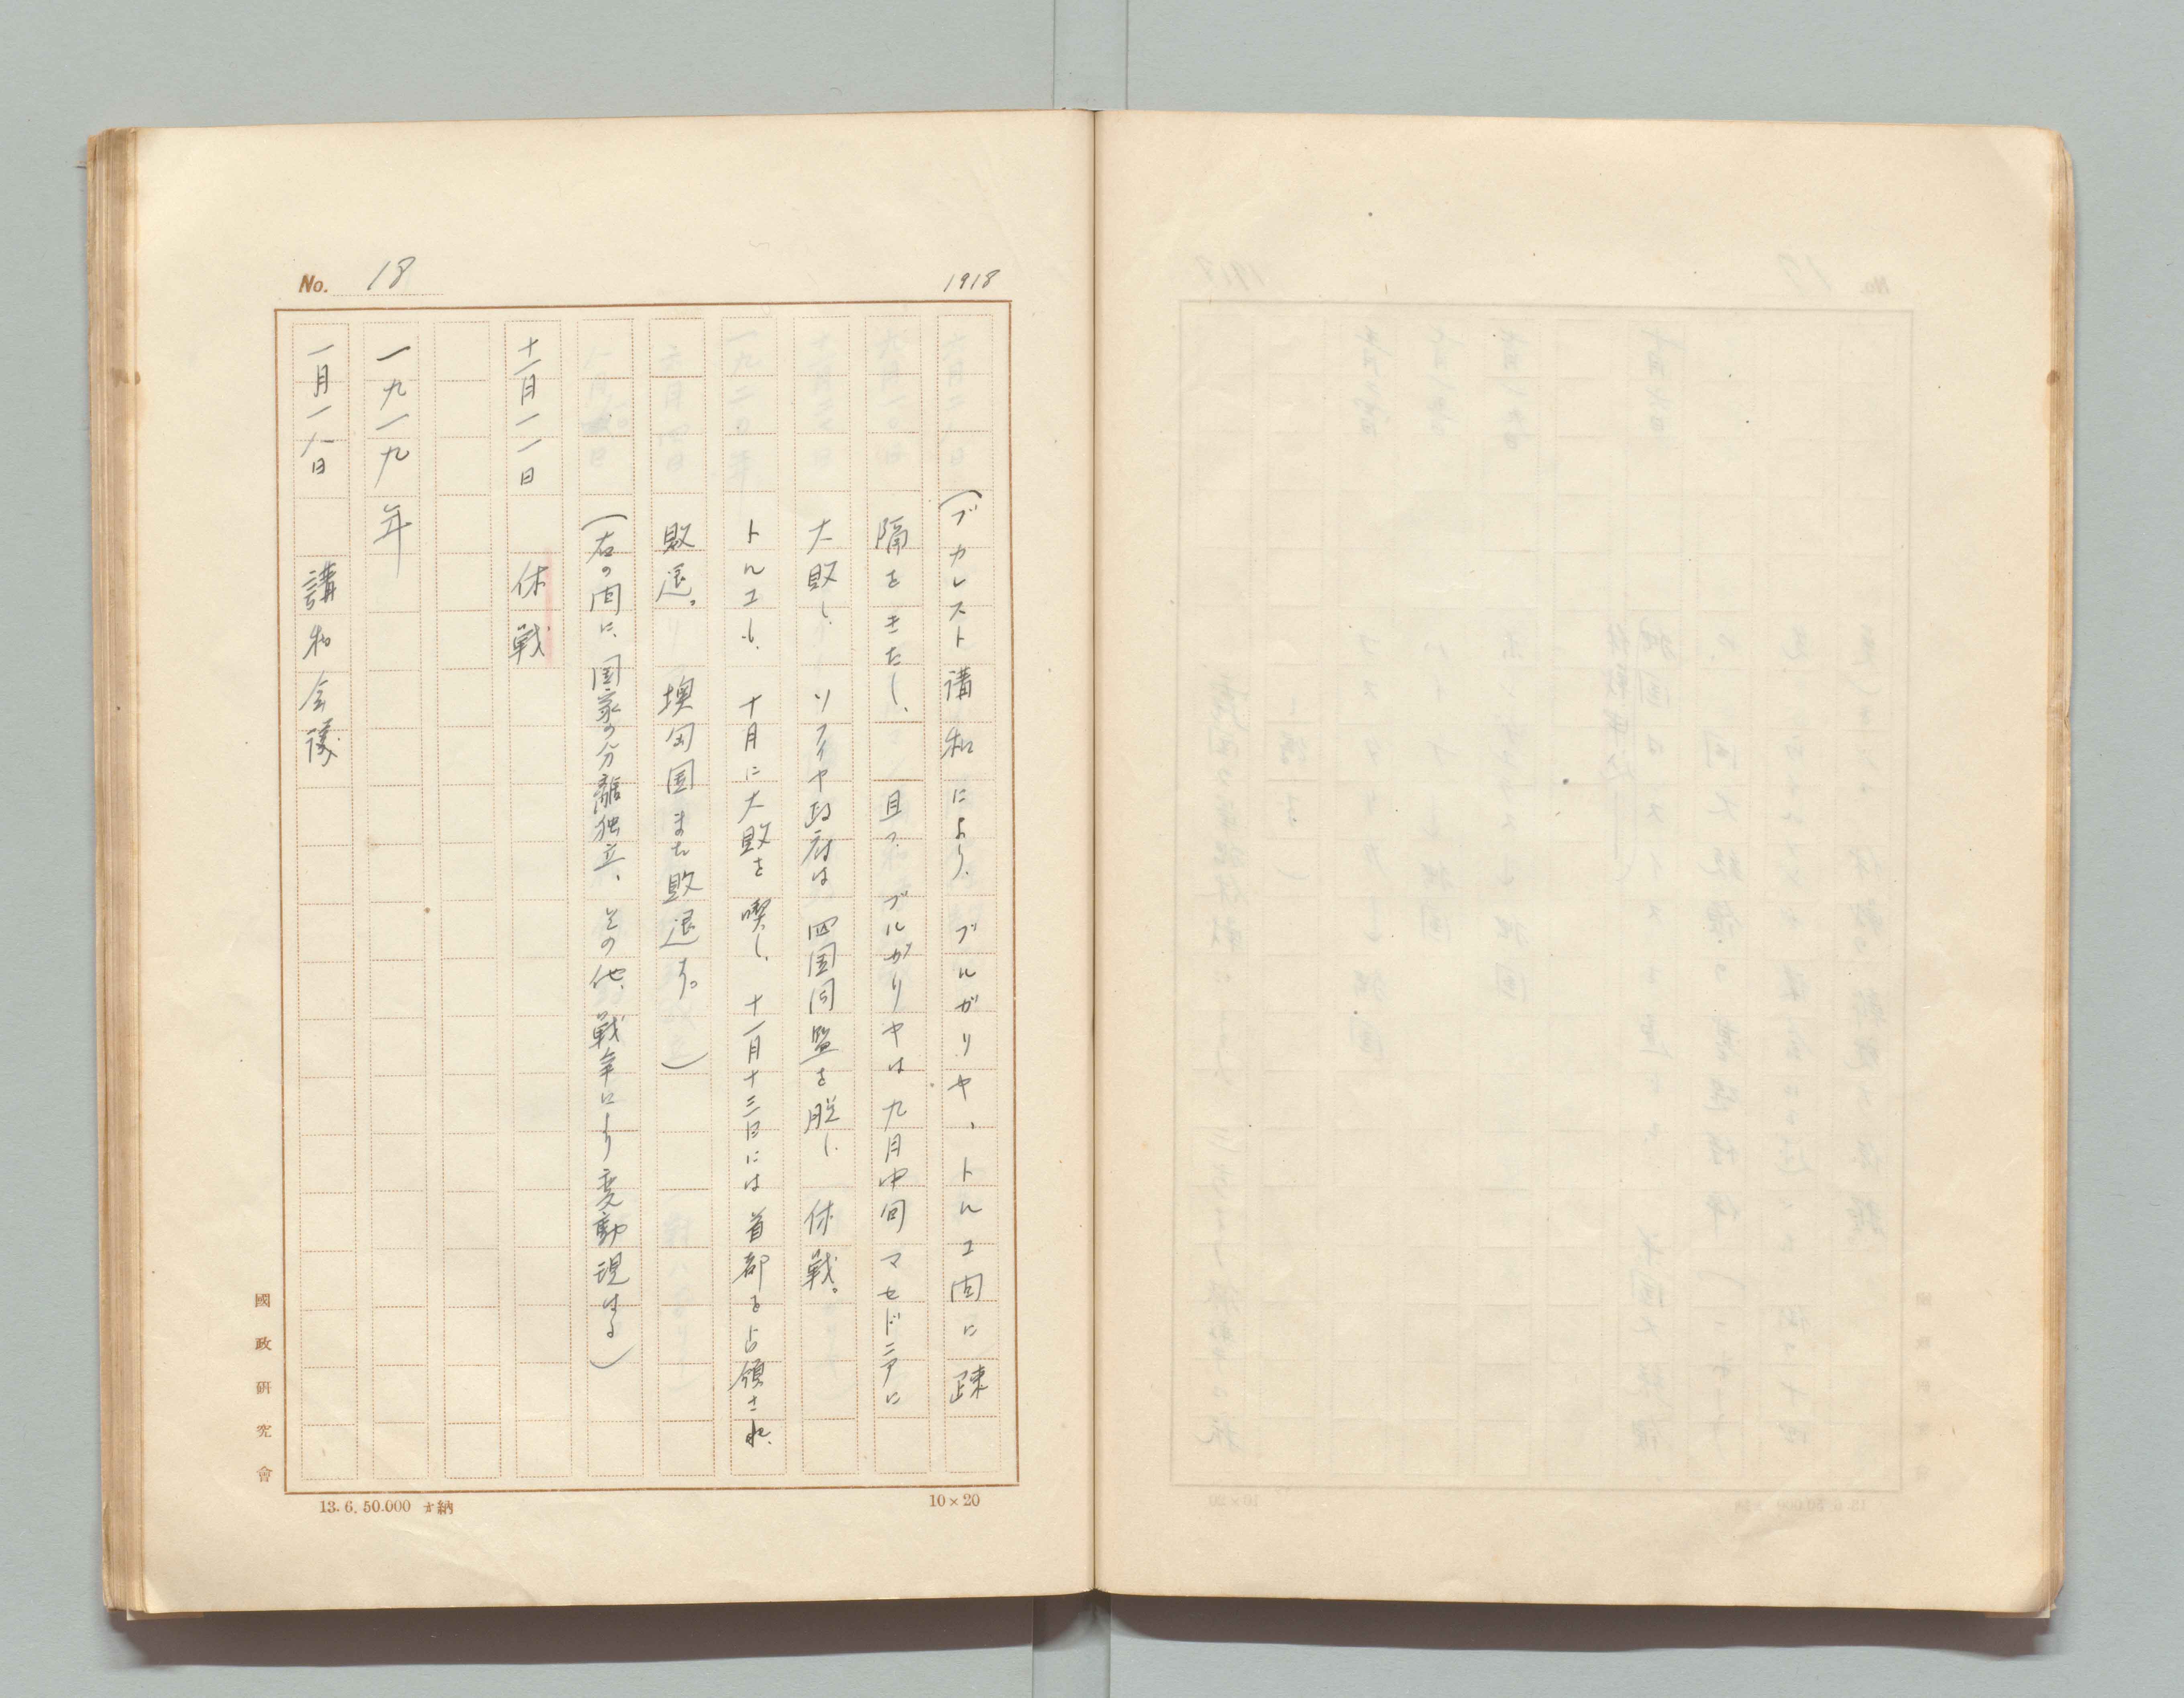 No. 18
1918
(ブカレスト講和により、ブルガリヤ、トルコ間に疎
隔をきたし、且つ、ブルガリヤは九月中旬マセドニアに
大敗し、ソフィヤ政府は四国同盟を脱し、休戦。
トルコも、十月に大敗を喫し、十一月十三日には首都を占領され、
敗退。墺匈国また敗退す。)
(右の間に、国家の分離独立、その他、戦争により変動現はる)
十一月一一日 休戦
一九一九年
一月一八日 講和会議
國政研究會
13.6.50.000 納
10×20